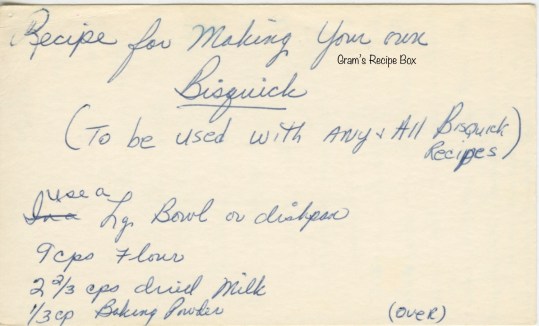 Recipe for Making Your own
Gram's Recipe Box
Bisquick
(To be used with ANY & All Bisquick
Recipes)
use a
In a Lg. Bowl or dishpan
9 cps Flour
2 2/3 cps dried Milk
1/3 cp Baking Powder
(OVER)